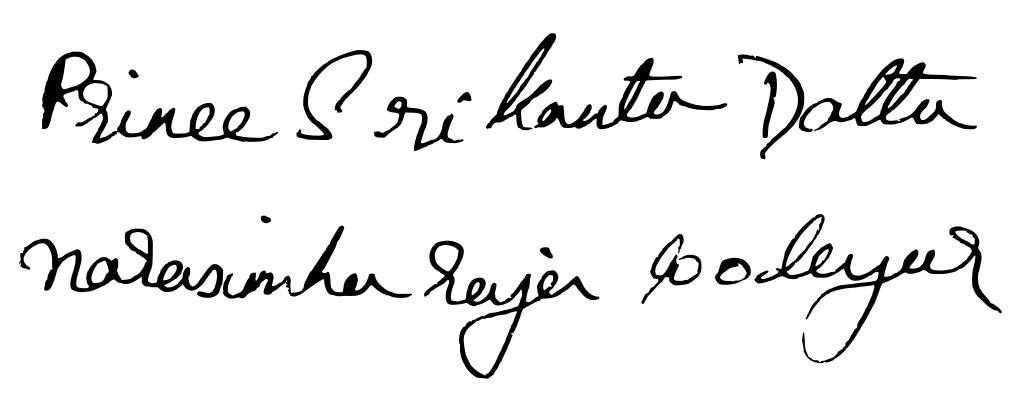 Prince Srikanta Datta
Narasimha Raja Wodeyar